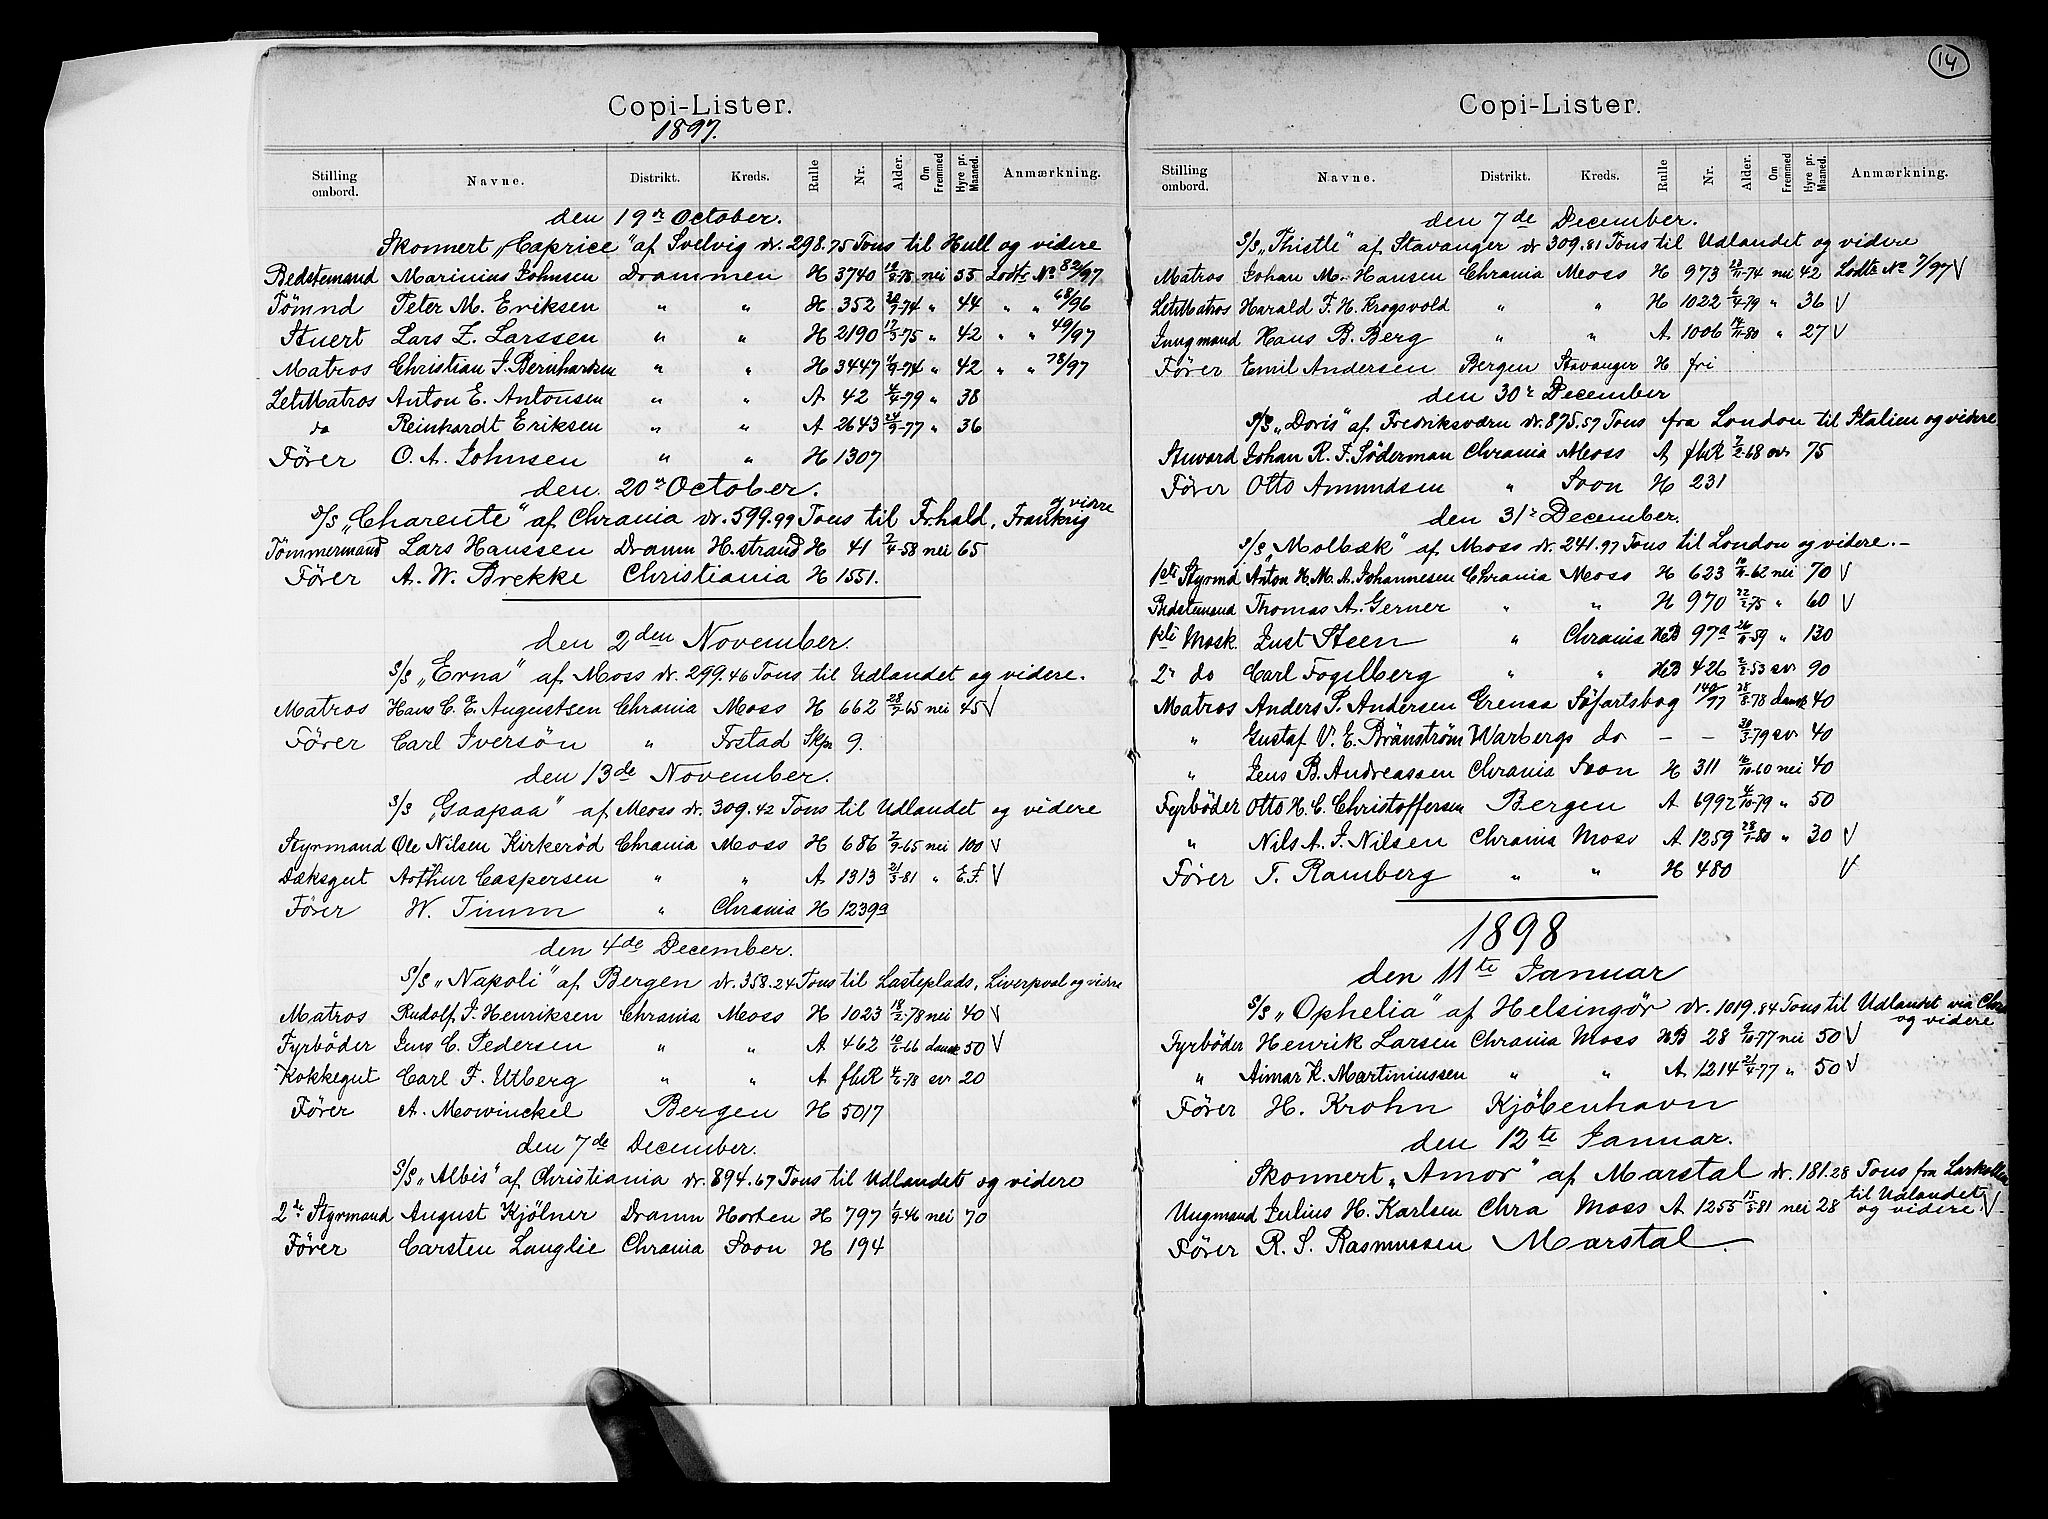 Copi-Lister.
1897.
Stilling ombord. Navne. Distrikt. Kreds. Rulle Nr. Alder. Om Fremmed Hyre pr. Maaned. Anmærkning.
den 19de October.
Skonnert „Caprice" af Svelvig dr. 298.75 Tons til Hull og videre
Bedstemand Marinius Johnsen Drammen H 3740 nei 55 Lodts No 82/97
Tømnd Peter M. Eriksen " " H 352 -74 " 44 " " 68/96
Stuert Lars Z. Larssen " " H 2190 -75 " 42 " " 49/97
Matros Christian J. Bernhardsen " " H 3447 -74 " 42 " " 78/97
LetMatros Anton E. Antonsen " " A 42 -79 " 38
do Reinhardt Eriksen " " A 2643 -77 " 36
Fører O. A. Johnsen " " H 1307
den 20de October.
S/S „Charente" af Chrania dr. 599.99 Tons til Frhald, Frankrig og videre
Tømmermand Lars Hanssen Dramn H.strand H 41 2/4-58 nei 65
Fører A. W. Brekke Christiania H 1551.
den 2den November.
S/S „Erna" af Moss dr. 299.46 Tons til Udlandet og videre.
Matros Hans C. E. Augustsen Chrania Moss H 662 -65 nei 45 V
Fører Carl Iversøn " Frstad Skpr 9.
den 13de November.
S/S „Gaapaa" af Moss dr. 309.42 Tons til Udlandet og videre
Styrmand Ole Nilsen Kirkerød Chrania Moss H 686 2/9-65 nei 100 V
Dæksgut Arthur Caspersen " " A 1313 21/3-81 " E.F. V
Fører W. Timm " Chrania H 1239a
den 4de December.
S/S „Napoli" af Bergen dr. 358.24 Tons til Lasteplads, Liverpool og videre
Matros Rudolf J. Henriksen Chrania Moss H 1023 18/2-78 nei 40 V
Fyrbøder Jens C. Pedersen " " A 462 10/6-66 dansk 50 V
Kokkegut Carl F. Utberg " " A fhR 4/6-78 sv 20
Fører A. Mowinckel Bergen H 5017
den 7de December.
S/S „Albis" af Christiania dr. 894.67 Tons til Udlandet og videre
2de Styrmand August Kjølner Dramn Horten H 797 1/9-46 nei 70
Fører Carsten Langlie Chrania Soon H 194
14
Copi-Lister.
Stilling ombord. Navne. Distrikt. Kreds. Rulle Nr. Alder. Om Fremmed Hyre pr. Maaned. Anmærkning.
den 7de December.
S/S „Thistle" af Stavanger dr 309.81 Tons til Udlandet og videre
Matros Johan M. Hansen Chrania Moss H 973 23/11-74 nei 42 Lodts No 7/97 V
LetMatros Harald F. H. Krogsvold " " H 1022 -79 " 36 V
Jungmand Hans B. Berg " " A 1006 14/11-80 " 27 V
Fører Emil Andersen Bergen Stavanger H fri
den 30te December
S/S „Doris" af Fredriksværn dr. 875.57 Tons fra London til Italien og videre
Stuvard Johan R. F. Söderman Chrania Moss A fhR -68 sv 75
Fører Otto Amundsen " Soon H 231
den 31te December.
S/S „Molbæk" af Moss dr. 241.97 Tons til London og videre.-
1ste Styrmd Anton H. M. A. Johannesen Chrania Moss H 623 -62 nei 70 V
Bedstemand Thomas A. Gerner " " H 970 22/2-75 " 60 V
1ste Mask. Just Steen " Chrania HB 97a -59 " 130
2n do Carl Fogelberg " " HB 426 2/2-53 sv 90
Matros Anders P. Andersen Grenaa Søfartsbog 140/97 28/8-78 dansk 40
" Gustaf V. E. Bränström Warbergs do — — 30/3-79 sv 40
" Jens B. Andreassen Chrania Soon H 311 16/10-60 nei 40
Fyrbøder Otto H. C. Christoffersen Bergen A 6992 4/10-79 " 50
" Nils A. J. Nilsen Chrania Moss A 1259 28/1-80 " 30 V
Fører T. Ramberg " " H 480 V
1898
den 11te Januar
S/S „Ophelia" af Helsingør dr. 1019.84 Tons til Udlandet via Chra og videre
Fyrbøder Henrik Larsen Chrania Moss HB 28 9/10-77 nei 50 V
" Aimar K. Martiniussen " " A 1214 21/4-77 " 50 V
Fører H. Krohn Kjöbenhavn
den 12te Januar.
Skonnert „Amor" af Marstal dr. 181.28 Tons fra Larkollen til Udlandet og videre
Ungmand Julius H. Karlsen Chra Moss A 1255 15/5-81 nei 28 V
Fører R. S. Rasmussen Marstal.